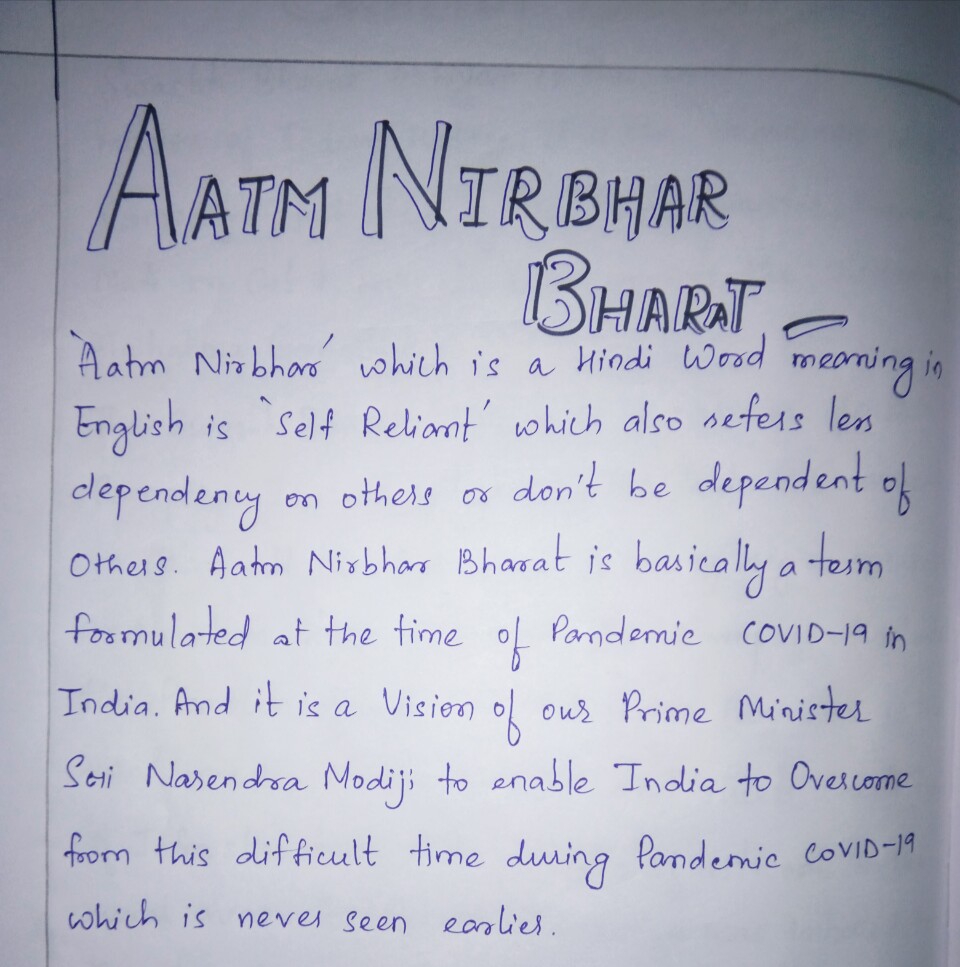 AATM NIRBHAR
BHARAT
'Aatm Nirbhar' which is a Hindi Word meaning in
English is 'Self Reliant' which also refers less
dependency on others or don't be dependent of
Others. Aatm Nirbhar Bharat is basically a term
formulated at the time of Pandemic COVID-19 in
India. And it is a Vision of our Prime Minister
Sri Narendra Modiji to enable India to Overcome
from this difficult time during Pandemic COVID-19
which is never seen earlier.